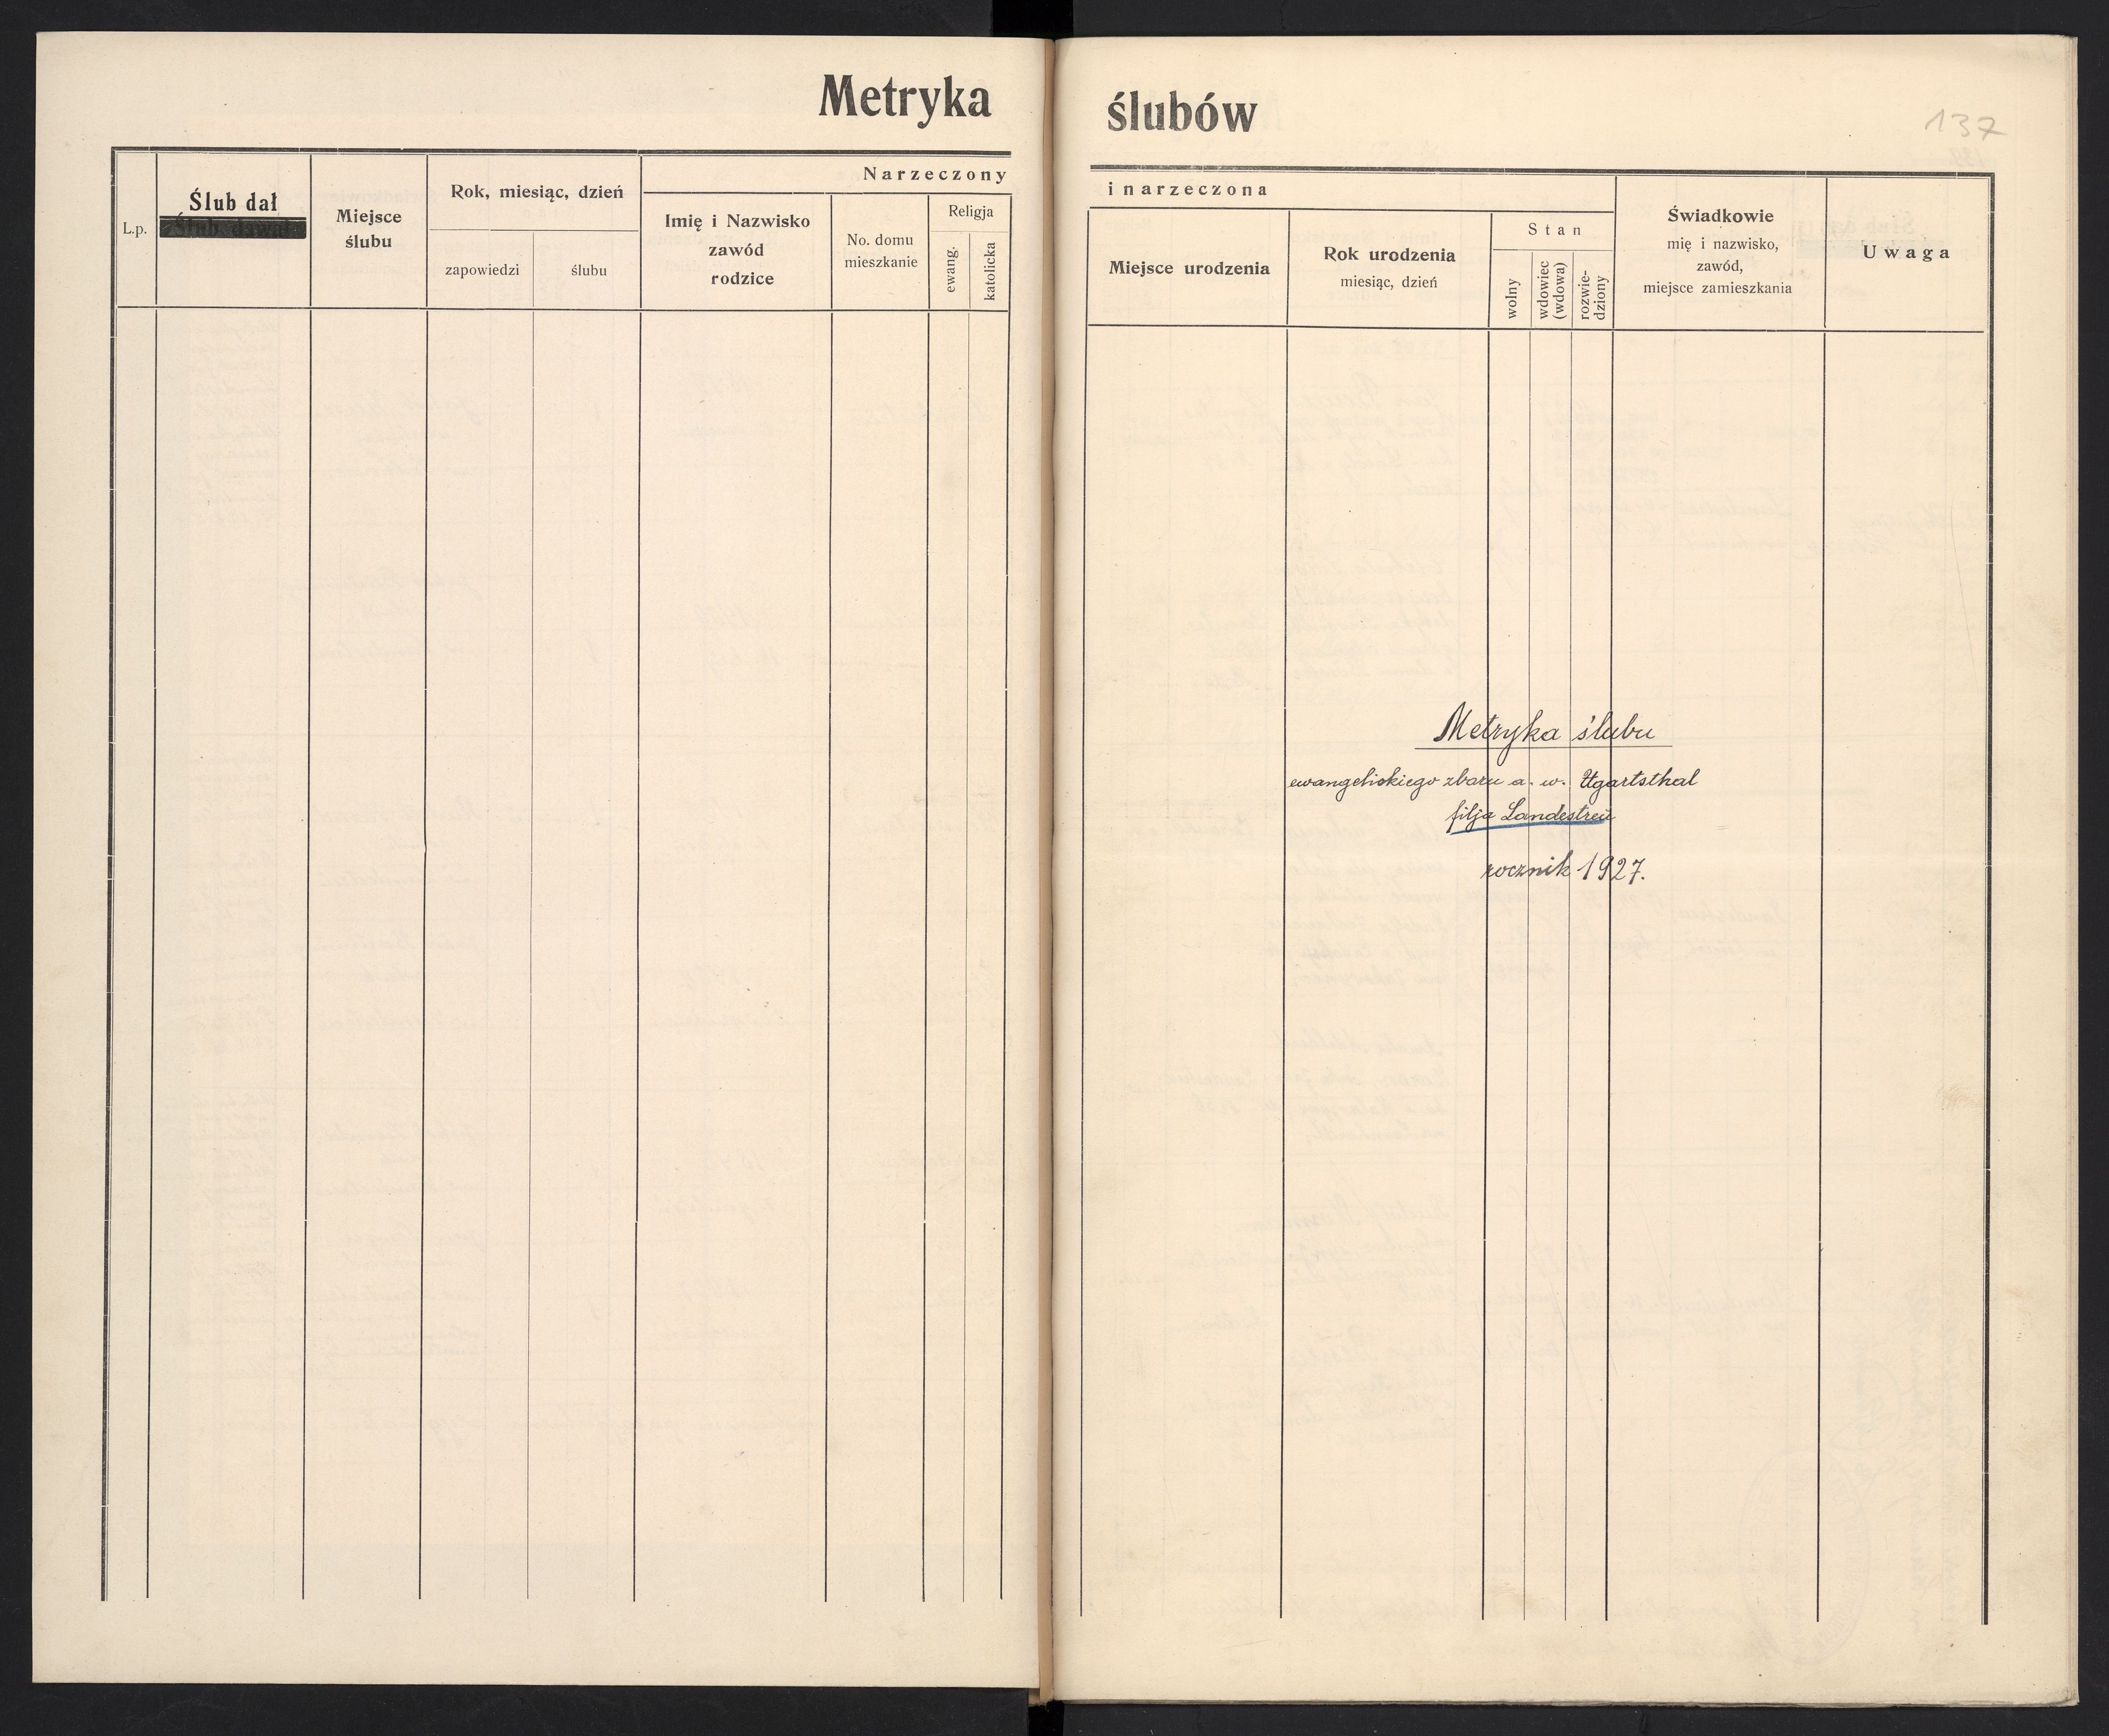 Metryka
L.p.
Ślub dał
Ślub dawał
Miejsce
ślubu
Rok, miesiąc, dzień
zapowiedzi
ślubu
Narzeczony
Imię i Nazwisko
zawód
rodzice
No. domu
mieszkanie
Religja
ewang.
katolicka
ślubów
137
i narzeczona
Miejsce urodzenia
Rok urodzenia
miesiąc, dzień
Stan
wolny
wdowiec
(wdowa)
rozwie-
dziony
Świadkowie
mię i nazwisko,
zawód,
miejsce zamieszkania
Uwaga
Metryka ślubu
ewangeliskiego zboru a. w. Ugartsthal
filja Landestreu
rocznik 1927.